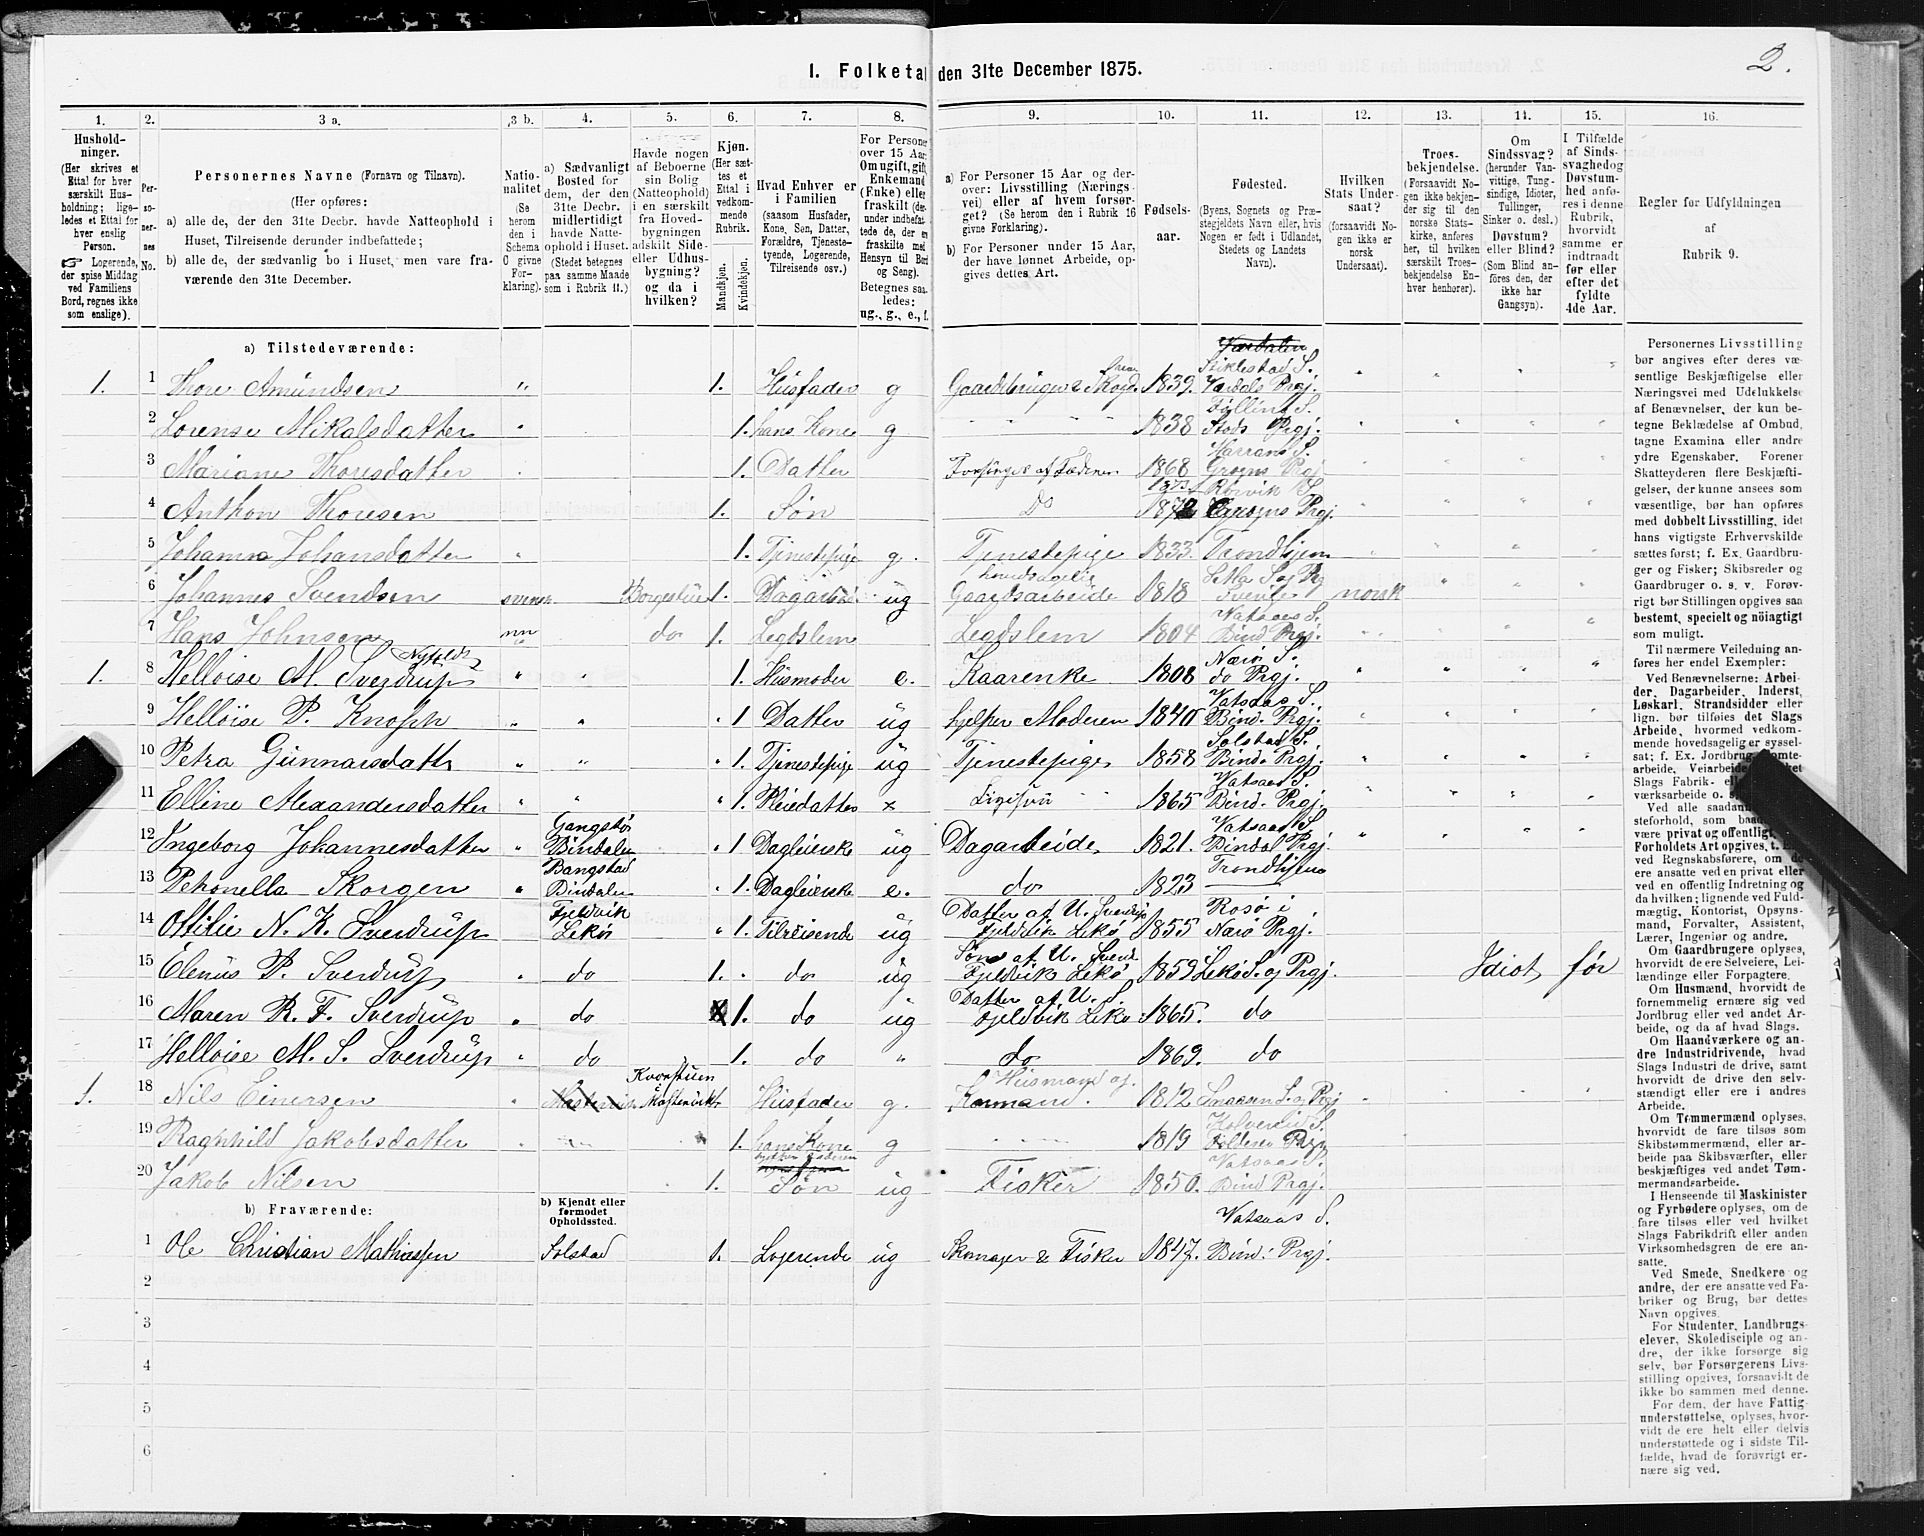 2.
1. Folketal den 31te December 1875.
1. 2. 3 a. 3 b. 4. 5. 6. 7. 8. 9. 10. 11. 12. 13. 14. 15. 16.
Hushold-
ninger.
(Her skrives et
Ettal for hver
særskilt Hus-
holdning; lige-
ledes et Ettal for
hver enslig
Person.
Logerende,
der spise Middag
ved Familiens
Bord, regnes ikke
som enslige).
Per-
so-
ner-
nes
No.
Personernes Navne (Fornavn og Tilnavn).
(Her opføres:
a) alle de, der den 31te Decbr. havde Natteophold i
Huset, Tilreisende derunder indbefattede;
b) alle de, der sædvanlig bo i Huset, men vare fra-
værende den 31te December.
Natio-
nalitet
(Se
herom
den i
Schema
C givne
For-
klaring).
a) Sædvanligt
Bosted for
dem, der den
31te Decbr.
midlertidigt
havde Natte-
ophold i Huset.
(Stedet betegnes
paa samme Maade
som i Rubrik 11.)
Havde nogen
af Beboerne
sin Bolig
(Natteophold)
i en særskilt
fra Hoved-
bygningen
adskilt Side-
eller Udhus-
bygning?
og da i
hvilken?
Kjøn.
(Her sæt-
tes et
Ettal i
vedkom-
mende
Rubrik.
Mandkjøn.
Kvindekjøn.
Hvad Enhver er
i Familien
(saasom Husfader,
Kone, Søn, Datter,
Forældre, Tjeneste-
tyende, Logerende,
Tilreisende osv.)
For Personer
over 15 Aar:
Om ugift, gift,
Enkemand
(Enke) eller
fraskilt (der-
under indbefat-
tede de, der ere
fraskilte med
Hensyn til Bord
og Seng).
Betegnes saa-
ledes:
ug., g., e., f.
a) For Personer 15 Aar og der-
over: Livsstilling (Nærings-
vei) eller af hvem forsør-
get? (Se herom den i Rubrik 16
givne Forklaring).
b) For Personer under 15 Aar,
der have lønnet Arbeide, op-
gives dettes Art.
Fødsels-
aar.
Fødested.
(Byens, Sognets og Præ-
stegjeldets Navn eller, hvis
Nogen er født i Udlandet,
Stedets og Landets
Navn).
Hvilken
Stats Under-
saat?
(forsaavidt No-
gen ikke er
norsk
Undersaat).
Troes-
bekjendelse.
(Forsaavidt No-
gen ikke bekjen-
der sig til den
norske Stats-
kirke, anføres
her, til hvilken
særskilt Troes-
bekjendelse En-
hver henhører).
Om
Sindssvag?
(herunder Van-
vittige, Tung-
sindige, Idioter,
Tullinger,
Sinker o. desl.)
Døvstum?
eller Blind?
(Som Blind an-
føres den, der
ikke har
Gangsyn).
I Tilfælde
af Sinds-
svaghed og
Døvstum-
hed anfø-
res i denne
Rubrik,
hvorvidt
samme er
indtraadt
før eller
efter det
fyldte
4de Aar.
Regler for Udfyldningen
af
Rubrik 9.
a) Tilstedeværende:
Værdalen
1. 1 Thore Amundsen " 1. Husfader g Gaardbruger & 1839. Stiklestad S. Værdals Prgj.
2 Lorense Mikalsdatter " 1. hans Kone g " " " 1838 Følling S. Stods Prgj.
3 Mariane Thoresdatter 1. Datter Forsørges af Faderen 1868 Harrans S. Grogns Prgj.
4 Anthon Thoresen 1. Søn Do 1873 Rørvik S. Prgj.
5 Johanna Johansdatter " 1. Tjenestepige g. Tjenestepige 1833. Trondhjem
6 Johannes Svendsen svensk Borgestue 1. Dagarbeid ug hovedsagelig Gaardsarbeide 1818 Sverige norsk
7 Hans Johnsen nn do 1. Legdslem Legdslem 1804 Vatsaas S. Bind. Prgj.
1. 8 Helloise M. Sverdrup " " 1. Husmoder e. Kaarenke 1808 Nærø S. do Prgj.
9 Helloise P. Knoph " " 1 Datter ug hjelper Moderen 1840 Vatsaas S. Bind. Prgj.
10 Petra Gunnarsdattr " " 1. Tjenestepige ug Tjenestepige 1858 Solstad S. Bind. Prgj.
11 Elline Alexandersdatter " " 1. Pleiedatter x 1865 Vatsaas S. Bind. Prgj.
12 Ingeborg Johannesdatter " Gangstø Bindalen 1. Dagleierske ug Dagarbeide 1821. Vatsaas S. Bindal Prgj.
13 Petronella Skorgen " Bangstad Bindalen 1. Dagleierske e. do 1823 Trondhjem
14 Ottilie N. K. Sverdrup Fjeldvik Lekø 1. Tilreisende ug Datter af U. Sverdrup Fjeldvik Lekø 1855 Rosø i Nærø Prgj.
15 Elenus P. Sverdrup " do 1. do ug Søn af U. Sverd. Fjeldvik Lekø 1859 Lekø S. og Prgj. Idiot før
16 Maren R. F. Sverdrup " do 1. do ug Datter af U. S. Fjeldvik Lekø 1865. do
17 Helloise M. S. Sverdrup " do 1. do " do 1869. do
1. 18 Nils Einersen " 1. Husfader g. Husmand 1812 Snaasen S. og Prgj
19 Raghnild Jakobsdatter 1. hans Kone g " " 1819 Kolvereid S. Prgj
20 Jakob Nilsen 1. Søn ug Fisker 1850. Vatsaas S. Bind Prgj.
b) Fraværende:
b) Kjendt eller
formodet
Opholdssted.
1 Ole Christian Mathiassen Solstad 1. Logerende ug Skomager & Fisker 1847. Vatsaas S. Bind: Prgj.
2
3
4
5
6
Personernes Livsstilling
bør angives efter deres væ-
sentlige Beskjæftigelse eller
Næringsvei med Udelukkelse
af Benævnelser, der kun be-
tegne Beklædelse af Ombud,
tagne Examina eller andre
ydre Egenskaber. Forener
Skatteyderen flere Beskjæfti-
gelser, der kunne ansees som
væsentlige, bør han opføres
med dobbelt Livsstilling, idet
hans vigtigste Erhvervskilde
sættes først; f. Ex. Gaardbru-
ger og Fisker; Skibsreder og
Gaardbruger o. s. v. Forøv-
rigt bør Stillingen opgives saa
bestemt, specielt og nöiagtigt
som muligt.
Til nærmere Veiledning an-
føres her endel Exempler:
Ved Benævnelserne: Arbei-
der, Dagarbeider, Inderst,
Løskarl, Strandsidder eller
lign. bør tilføies det Slags
Arbeide, hvormed vedkom-
mende hovedsagelig er syssel-
sat; f. Ex. Jordbrug,
arbeide, Veiarbeide,
Slags Fabrik-
værksarbeide o. s.
Ved alle saadanne
steforhold, som
være privat og offentligt,
Forholdets Art opgives,
ved Regnskabsførere, om de
ere ansatte ved en privat eller
ved en offentlig Indretning og
da hvilken; lignende ved Fuld-
mægtig, Kontorist, Opsyns-
mand, Forvalter, Assistent,
Lærer, Ingeniør og andre.
Om Gaardbrugere oplyses,
hvorvidt de ere Selveiere, Lei-
lændinge eller Forpagtere.
Om Husmænd, hvorvidt de
fornemmelig ernære sig ved
Jordbrug eller ved andet Ar-
beide, og da af hvad Slags.
Om Haandværkere og an-
dre Industridrivende, hvad
Slags Industri de drive, samt
hvorvidt de drive den selv-
stændigt eller ere i andres
Arbeide.
Om Tømmermænd oplyses,
hvorvidt de fare tilsøs som
Skibstømmermænd, eller ar-
beide paa Skibsværfter, eller
beskjæftiges ved andet Tøm-
mermandsarbeide.
I Henseende til Maskinister
og Fyrbødere oplyses, om de
fare tilsøs eller ved hvilket
Slags Fabrikdrift eller anden
Virksomhedsgren de ere an-
satte.
Ved Smede, Snedkere og
andre, der ere ansatte ved Fa-
briker og Brug, bør dettes
Navn opgives.
For Studenter, Landbrugs-
elever, Skoledisciple og an-
dre, der ikke forsørge sig
selv, bør Forsørgerens Livs-
stilling opgives, forsaavidt de
ikke bo sammen med denne.
For dem, der have Fattig-
understøttelse, oplyses, hvor-
vidt de ere helt eller delvis
understøttede og i sidste Til-
fælde, hvad de forøvrigt er-
nære sig ved.